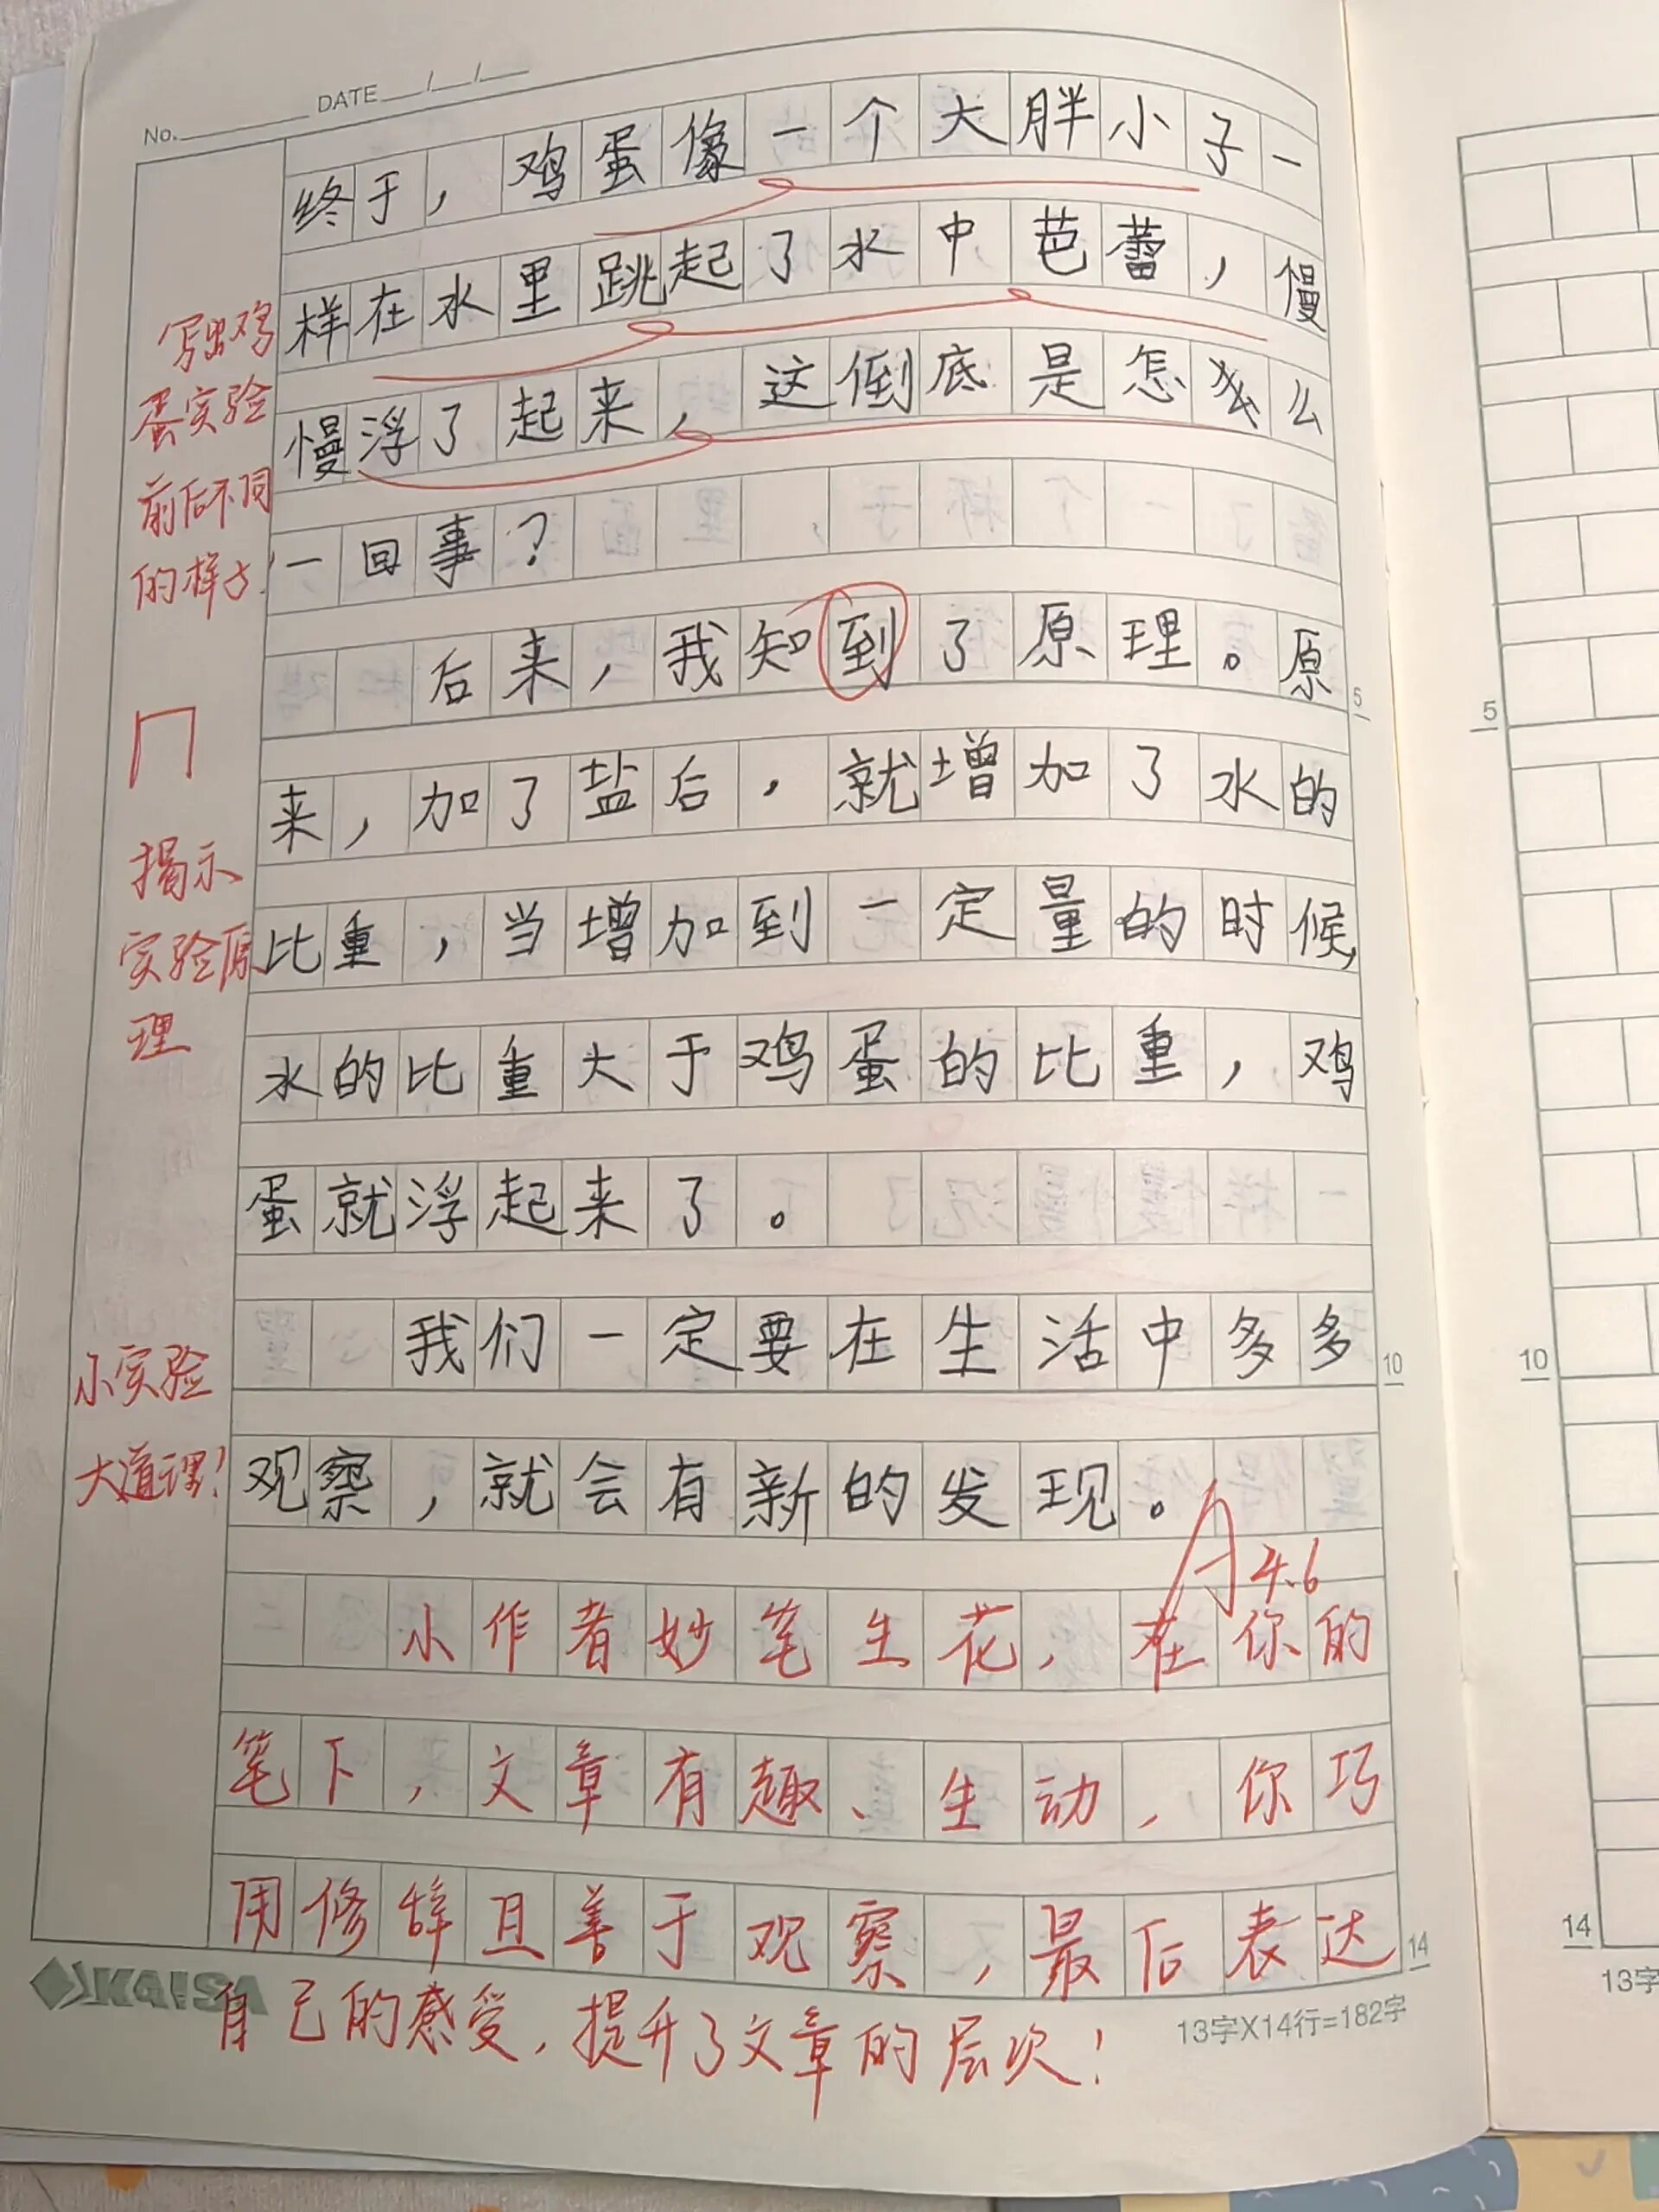 No. DATE / /
终于，鸡蛋像一个大胖小子一
样在水里跳起了水中芭蕾，慢
慢浮了起来，这倒底是怎么
一回事？
后来，我知到了原理。原
来，加了盐后，就增加了水的
比重，当增加到一定量的时候，
水的比重大于鸡蛋的比重，鸡
蛋就浮起来了。
我们一定要在生活中多多
观察，就会有新的发现。
A 4.6
小作者妙笔生花，在你的
笔下，文章有趣、生动，你巧
用修辞且善于观察，最后表达
自己的感受，提升了文章的层次！
写出鸡
蛋实验
前后不同
的样子
揭示
实验原
理
小实验
大道理！
5
10
14
KAISA
13字X14行=182字
5
10
14
13字